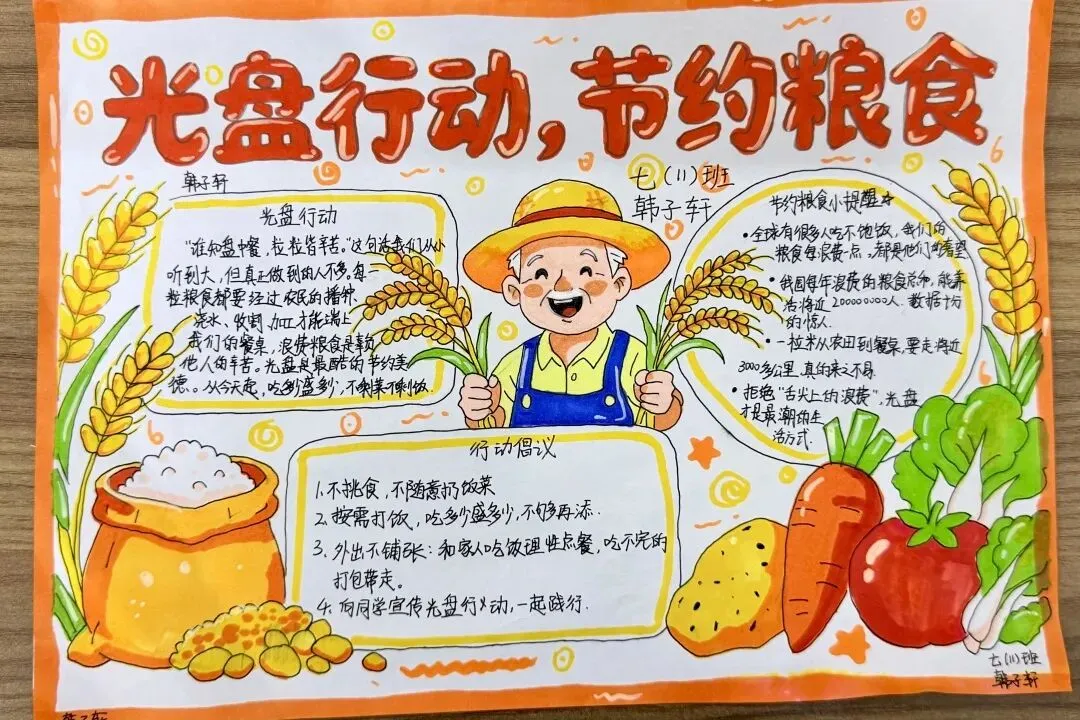 光盘行动，节约粮食
韩子轩
七（11）班
韩子轩
光盘行动
“谁知盘中餐，粒粒皆辛苦。”这句话我们从小
听到大，但真正做到的人不多。每一
粒粮食都要经过农民的播种、
浇水、收割、加工才能端上
我们的餐桌，浪费粮食是辜负
他人的辛苦。光盘是最酷的节约美
德。从今天起，吃多少盛多少，不剩菜不剩饭。
节约粮食小提醒
•全球有很多人吃不饱饭，我们的
粮食每浪费一点，都是他们的希望
•我国每年浪费的粮食总和，能养
活将近200000000人，数据十分
的惊人.
•一粒米从农田到餐桌，要走将近
3000多公里，真的来之不易
•拒绝“舌尖上的浪费”，光盘
才是最潮的生
活方式.
行动倡议
1.不挑食，不随意扔饭菜
2.按需打饭，吃多少盛多少，不够再添.
3.外出不铺张：和家人吃饭理性点餐，吃不完的
打包带走。
4.向同学宣传光盘行动，一起践行.
七（11）班
韩子轩
韩子轩